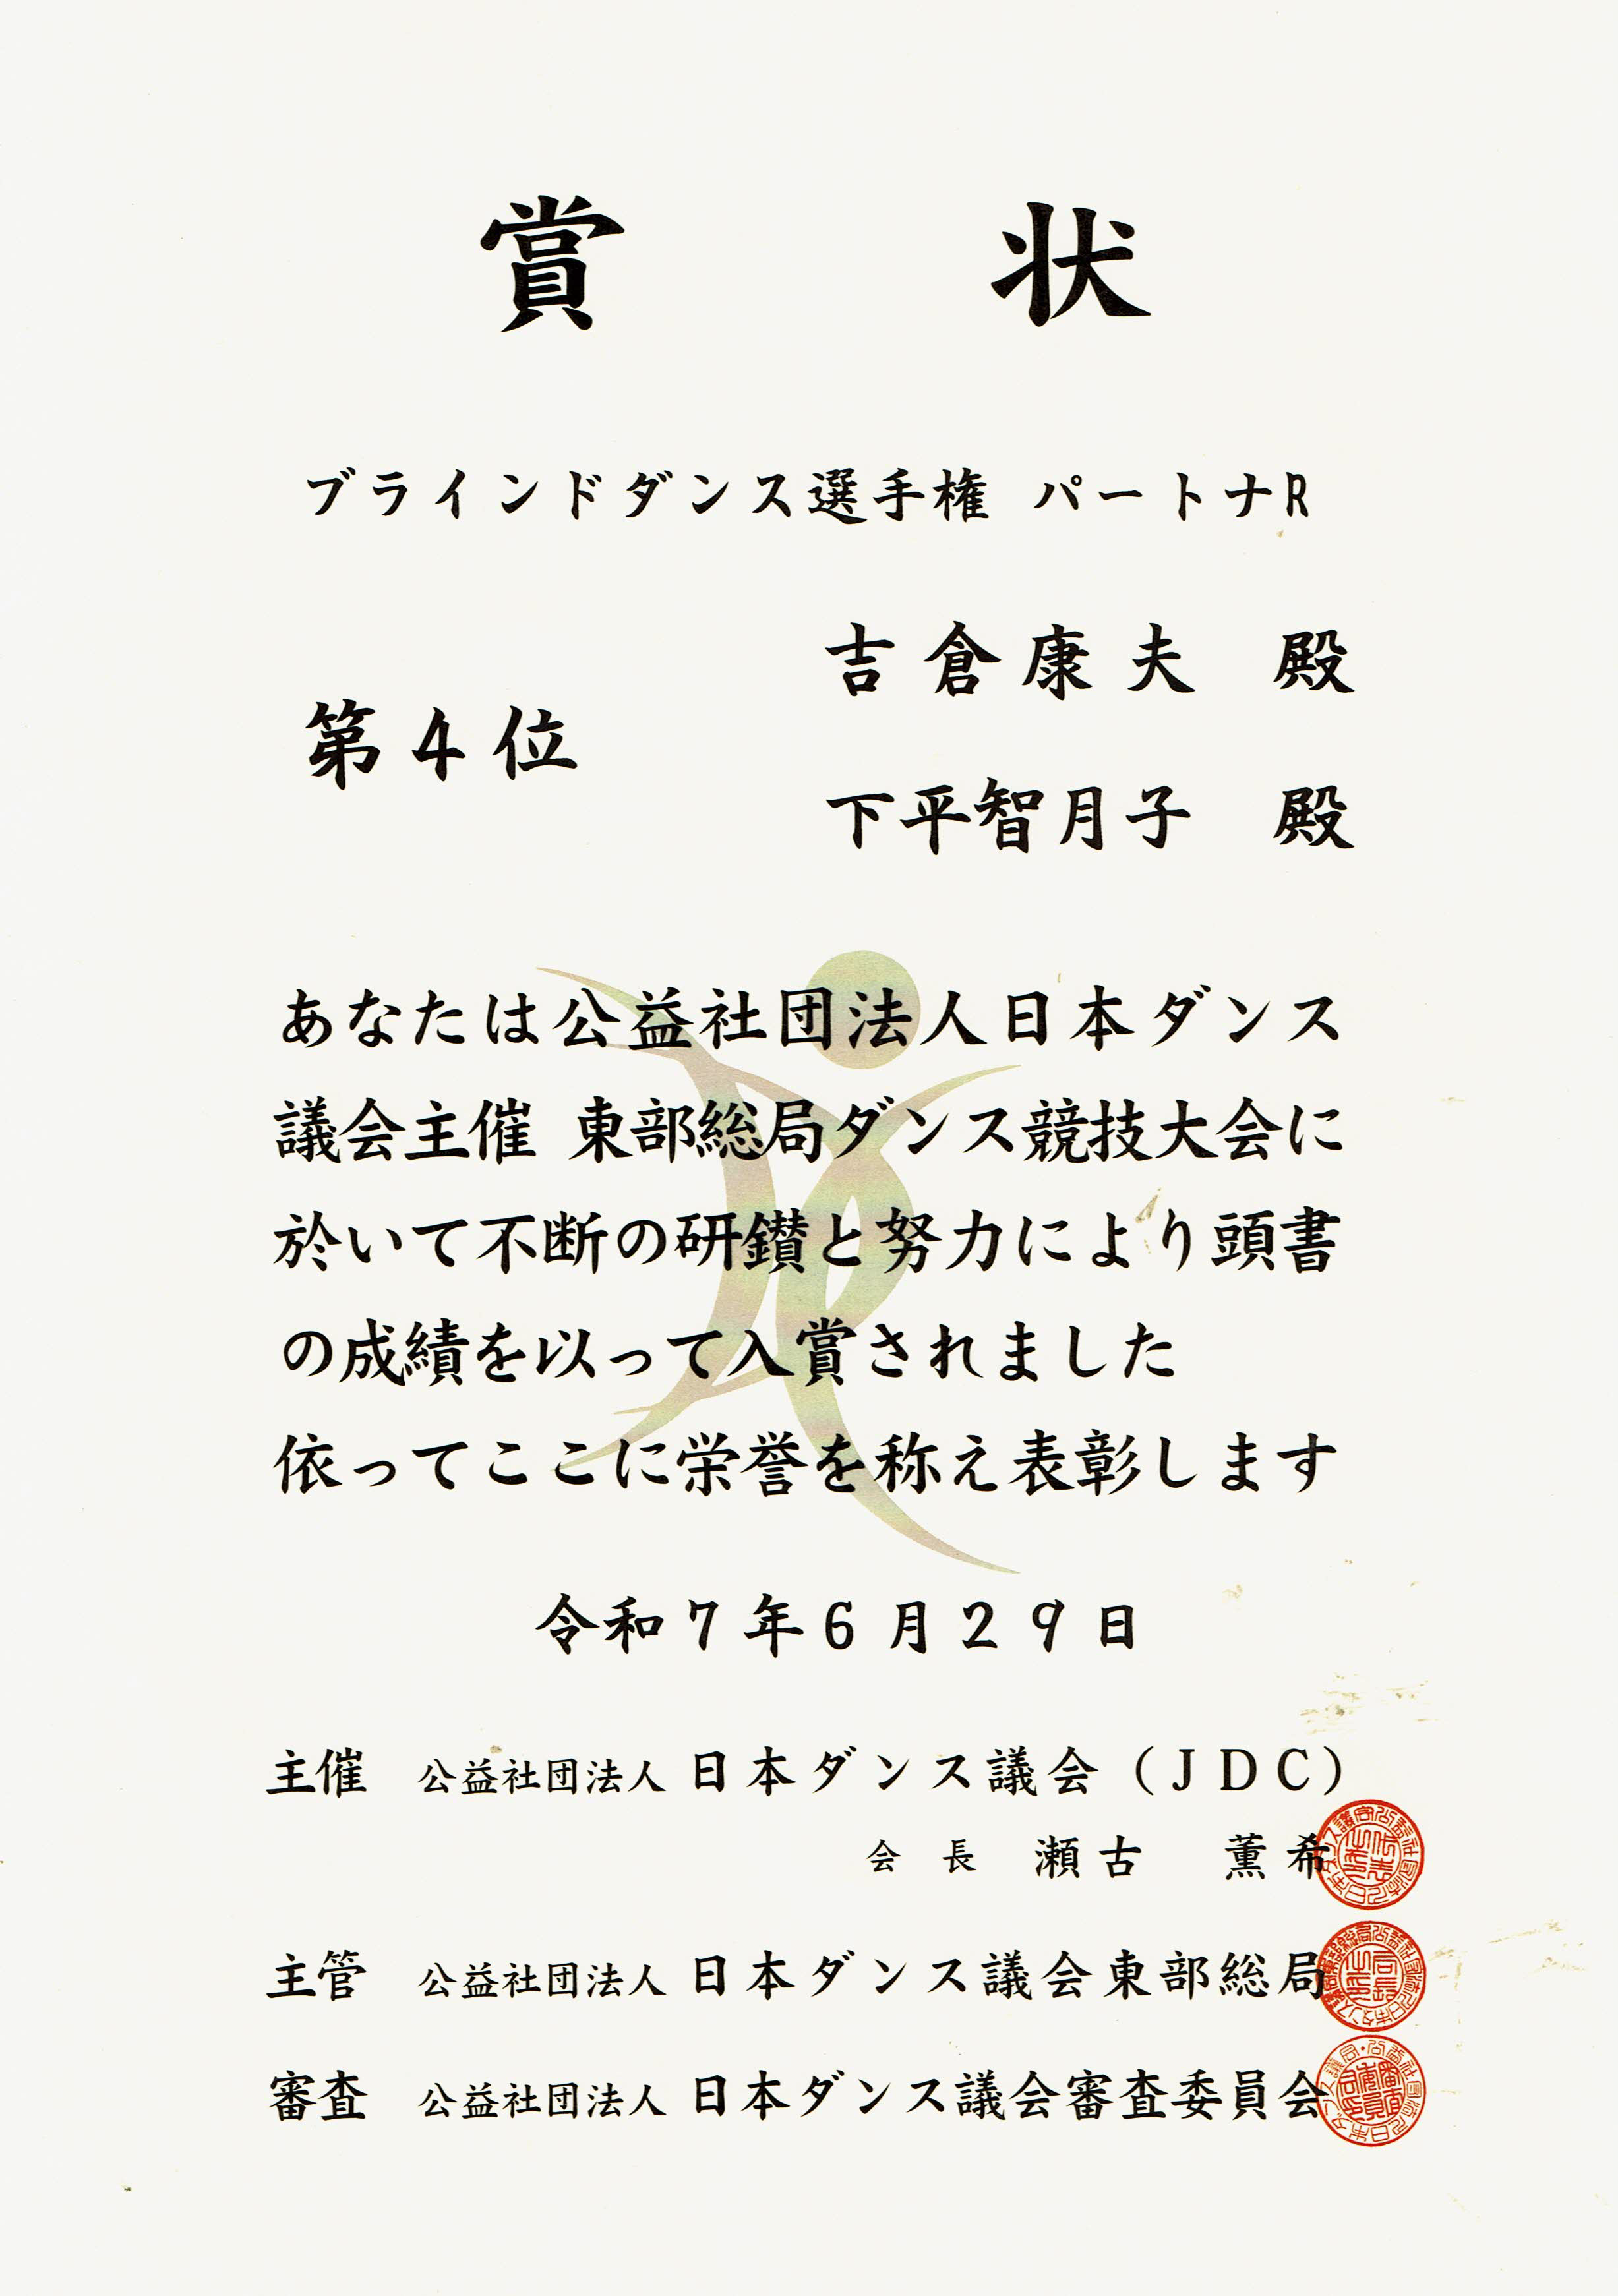 賞状
ブラインドダンス選手権 パートナR
吉倉康夫 殿
第4位
下平智月子 殿
あなたは公益社団法人日本ダンス
議会主催 東部総局ダンス競技大会に
於いて不断の研鑚と努力により頭書
の成績を以って入賞されました
依ってここに栄誉を称え表彰します
令和7年6月29日
主催 公益社団法人 日本ダンス議会(JDC)
会長 瀬古 薫希
主管 公益社団法人 日本ダンス議会東部総局
審査 公益社団法人 日本ダンス議会審査委員会